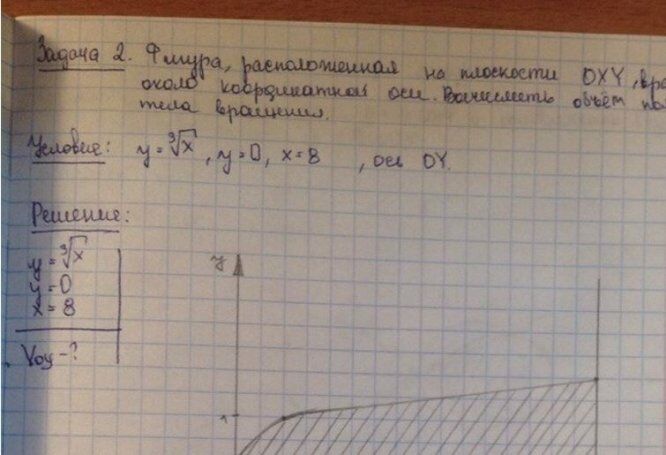 Задача 2. Фигура, расположенная на плоскости OXY, вра
около координатной оси. Вычислить объём по
тела вращения.
Условие: y = ∛x, y=0, x=8, ось OY.
Решение:
y = ∛x
y = 0
x = 8
Voy - ?
y
1